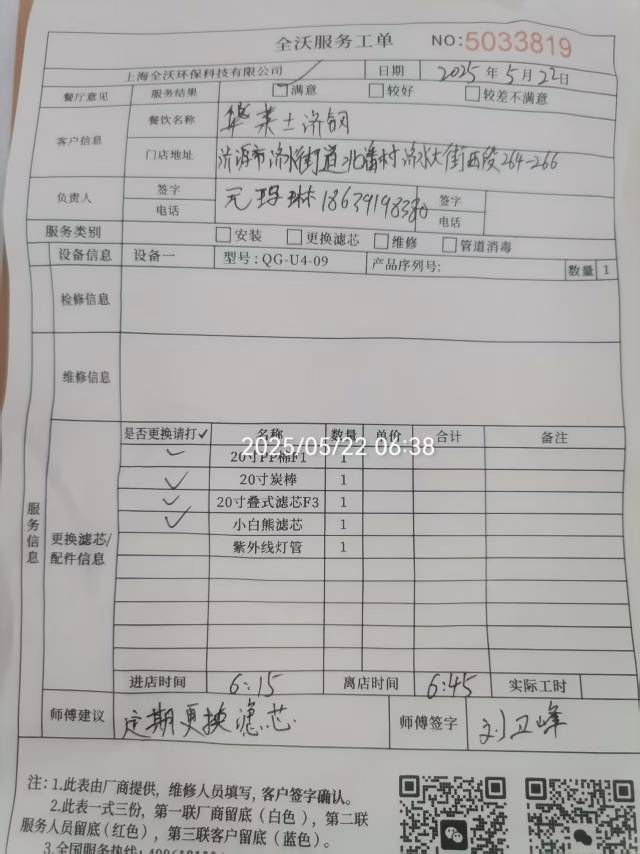 全沃服务工单 NO:5033819
上海全沃环保科技有限公司 日期 2025年5月22日
餐厅意见 服务结果 ✓满意 较好 较差不满意
客户信息 餐饮名称 华莱士济钢
门店地址 济源市济水街道北潘村济水大街西段264-266
负责人 签字 签字
电话 电话
服务类别 安装 更换滤芯 维修 管道消毒
设备信息 设备一 型号:QG-U4-09 产品序列号: 数量 1
检修信息
维修信息
服务信息
更换滤芯/配件信息
是否更换请打✓ 名称 数量 单价 合计 备注
2025/05/22 06:38
✓ 20寸PP棉F1 1
✓ 20寸炭棒 1
✓ 20寸叠式滤芯F3 1
✓ 小白熊滤芯 1
紫外线灯管 1
进店时间 6:15 离店时间 6:45 实际工时
师傅建议 定期更换滤芯. 师傅签字 刘卫峰
注: 1.此表由厂商提供，维修人员填写，客户签字确认。
2.此表一式三份，第一联厂商留底（白色），第二联
服务人员留底(红色)，第三联客户留底（蓝色）。
3.全国服务热线: